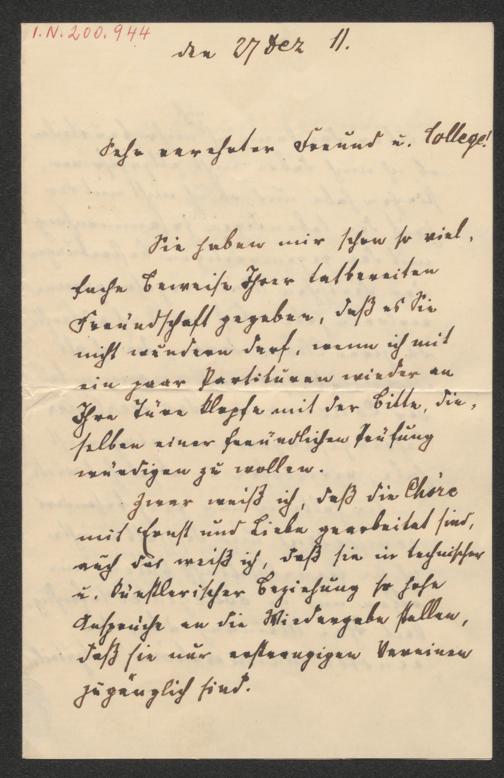 I.N. 200.944
den 27 Dez 11.
Sehr verehrter Freund u. College!
Sie haben mir schon so viel-
fache Beweise Ihrer tatbereiten
Freundschaft gegeben, daß es Sie
nicht wundern darf, wenn ich mit
ein paar Partituren wieder an
Ihre Türe klopfe mit der Bitte, die-
selben einer freundlichen Prüfung
würdigen zu wollen.
Zwar weiß ich, daß die Chöre
mit Ernst und Liebe gearbeitet sind,
auch das weiß ich, daß sie in technischer
u. künstlerischer Beziehung so hohe
Ansprüche an die Wiedergabe stellen,
daß sie nur erstrangigen Vereinen
zugänglich sind.